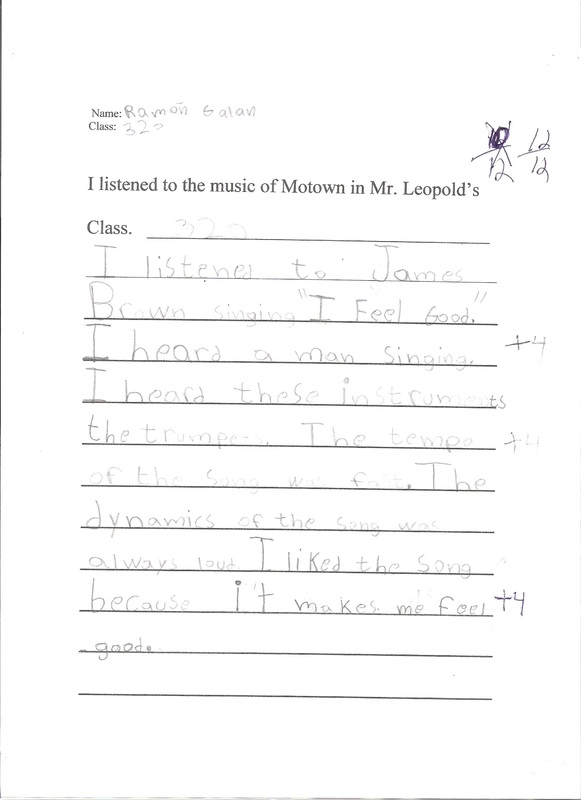 Name: Ramón Galan
Class: 320
12 12
12
I listened to the music of Motown in Mr. Leopold's
Class. 320
I listened to James
Brown singing "I Feel Good."
I heard a man singing. +4
I heard these instruments
the trumpets. The tempo +4
of the song was fast. The
dynamics of the song was
always loud. I liked the song
because it makes me feel +4
good.